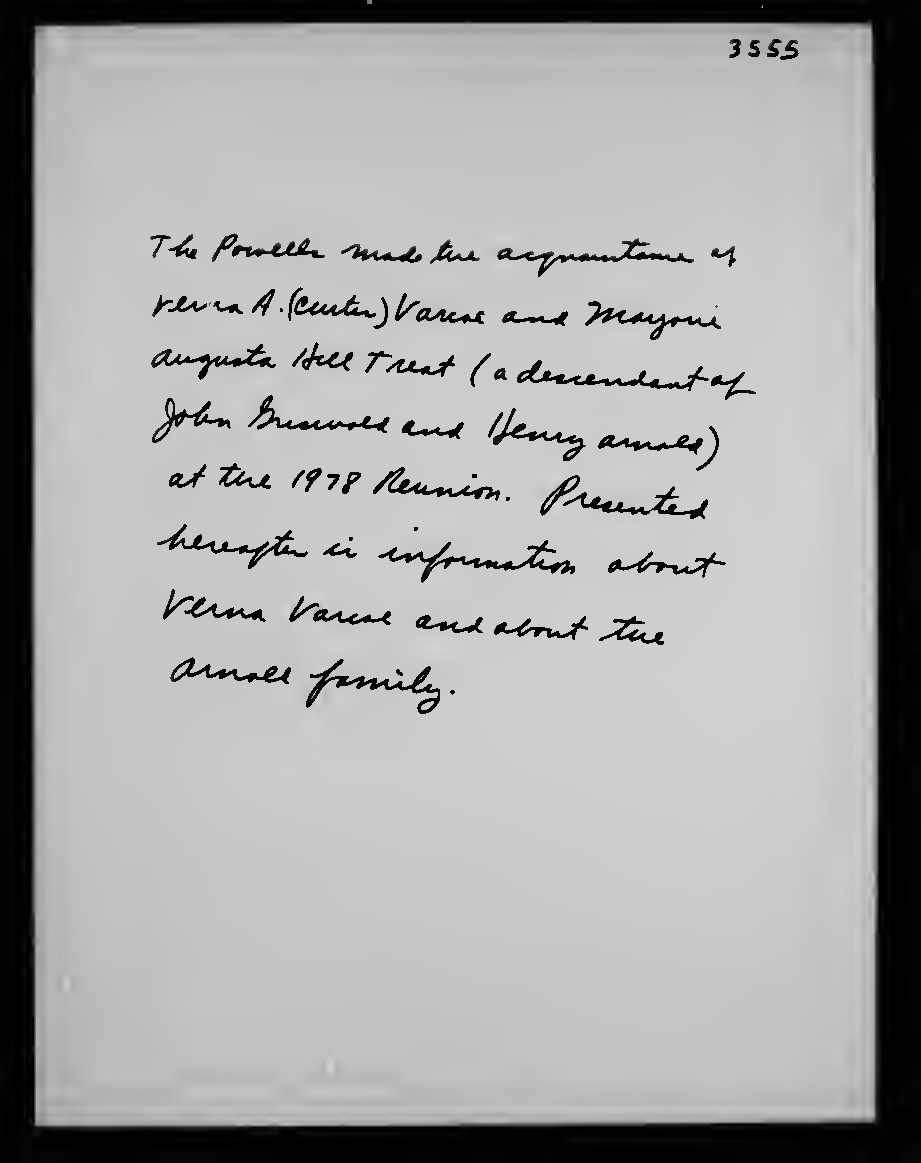 3555
The Powells made the acquaintance of
Verna A. (Curtis) Varcoe and Marjorie
Augusta Hill Treat (a descendant of
John Griswold and Henry Arnold)
at the 1978 Reunion. Presented
hereafter is information about
Verna Varcoe and about the
Arnold family.